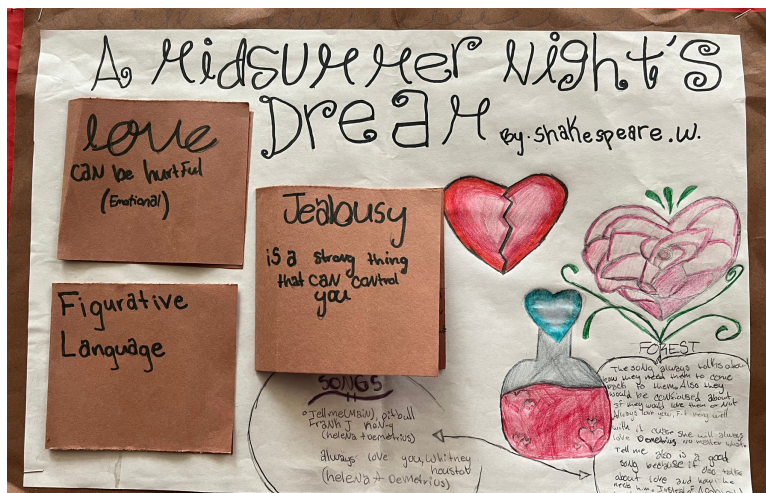 A Midsummer Night's
Dream
By. Shakespeare.W.
love
can be hurtful
(Emotional)
Jealousy
is a strong thing
that can control
you
Figurative
Language
SONGS
Tell me (Main), pitbull
Frank J
(helena + demetrius)
always love you, whitney
houston
(helena + Demetrius)
FOREST
The song always talks about
how they need them to come
back to them. Also they
would be confused about
if they would love them or Not
Always love you, Fit very well
with it cause she will always
love Demetrius no matter what.
Tell me also is a good
song because it also talks
about love and how he
needs him